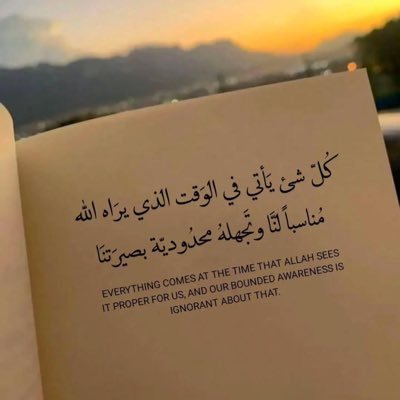 كُلّ شئ يَأتي في الوَقت الذي يرَاه الله
مُناسباً لنَّا وتَجهلهُ محدُوديّة بصيرَتنَا
EVERYTHING COMES AT THE TIME THAT ALLAH SEES
IT PROPER FOR US, AND OUR BOUNDED AWARENESS IS
IGNORANT ABOUT THAT.